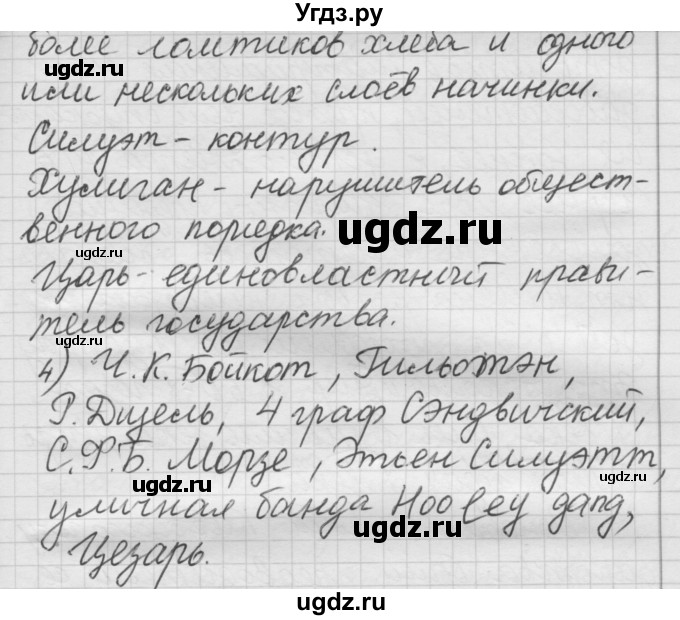 Угдз.ру
более ломтиков хлеба и одного
ugdz.ru
ugdz.ru
или нескольких слоёв начинки.
Силуэт - контур.
Хулиган - нарушитель общест-
венного порядка.
ugdz.ru
ugdz.ru
Царь - единовластный прави-
тель государства.
ugdz.ru
4) Ч. К. Бойкот, Гильотэн,
Р. Дизель, 4 граф Сэндвичский,
С. Ф. Б. Морзе, Этьен Силуэтт,
ugdz.ru
ugdz.ru
уличная банда Hooley gang,
ugdz.ru
Цезарь.
ugdz.ru
ugdz.ru